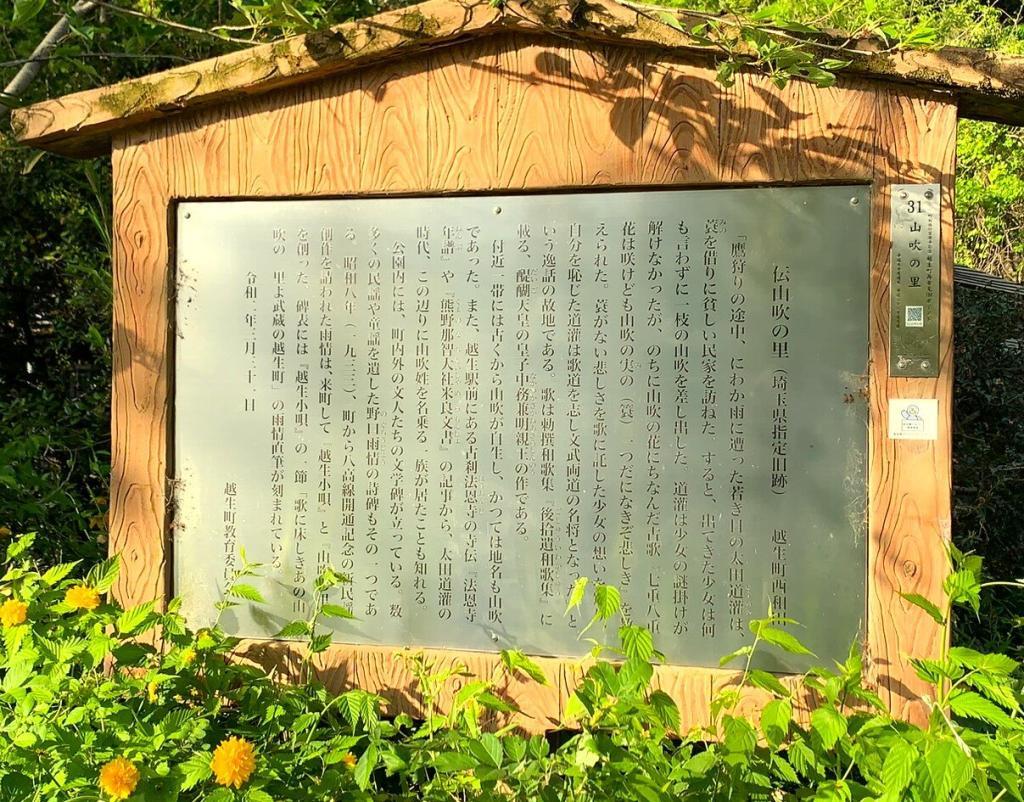 伝山吹の里（埼玉県指定旧跡）　越生町西和
『鷹狩りの途中、にわか雨に遭った若き日の太田道灌は、
蓑を借りに貧しい民家を訪ねた。すると、出てきた少女は何
も言わずに一枝の山吹を差し出した。道灌は少女の謎掛けが
解けなかったが、のちに山吹の花にちなんだ古歌「七重八重
花は咲けども山吹の実の（簑）一つだになきぞ悲しき」を
えられた。蓑がない悲しさを歌に託した少女の想い
自分を恥じた道灌は歌道を志し文武両道の名将となった』と
いう逸話の故地である。歌は勅撰和歌集『後拾遺和歌集』に
載る、醍醐天皇の皇子中務兼明親王の作である。
付近一帯には古くから山吹が自生し、かつては地名も山吹
であった。また、越生駅前にある古刹法恩寺の寺伝『法恩寺
年譜』や『熊野那智大社米良文書』の記事から、太田道灌の
時代、この辺りに山吹姓を名乗る一族が居たことも知れる。
公園内には、町内外の文人たちの文学碑が立っている。数
多くの民謡や童謡を遺した野口雨情の詩碑もその一つであ
る。昭和八年（一九三三）、町から八高線開通記念の新民謡
創作を請われた雨情は、来町して『越生小唄』と『山吹の里
を創った。碑表には『越生小唄』の一節「歌に床しきあの山
吹の　里よ武蔵の越生町」の雨情直筆が刻まれている。
令和二年三月三十日
越生町教育委
31 山吹の里